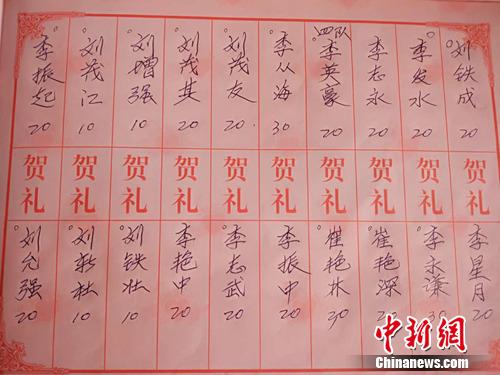 李振起 20
刘茂江 10
刘增强 10
刘茂其 20
刘茂友 20.
李从海 30
四队 李英豪 20
李志永 20
李发水 20
刘铁成 20
贺礼 贺礼 贺礼 贺礼 贺礼 贺礼 贺礼 贺礼 贺礼 贺礼
刘允强 20
刘新壮 10
刘铁壮 10
李艳中 20
李志武 20
李振中 20
崔艳林 30
崔艳深
李永 30
李星月 20
中新网
Chinanews.com